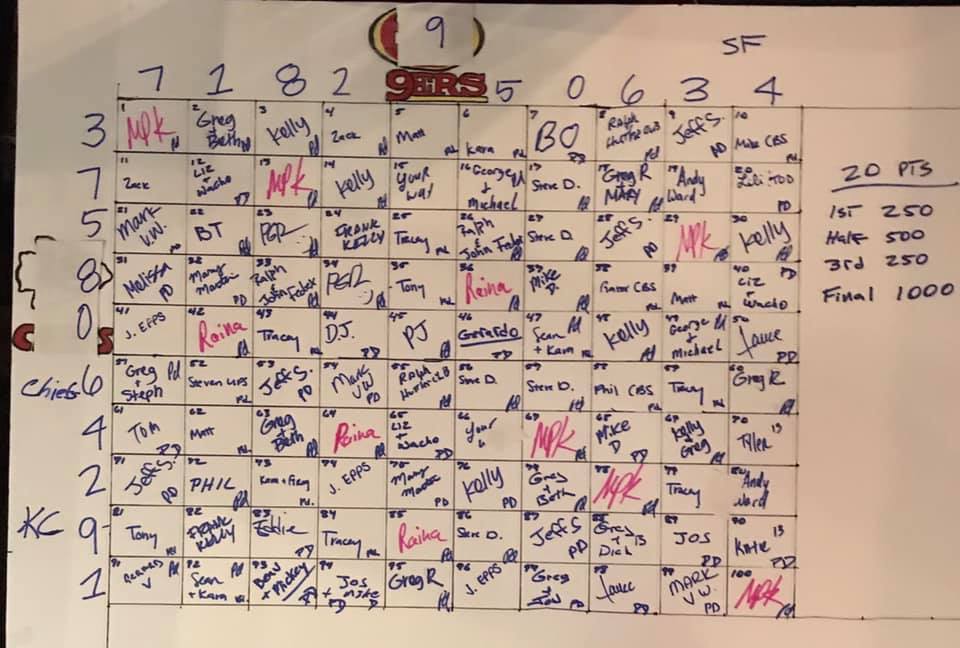 9
SF
9ERS
7 1 8 2 5 0 6 3 4
3
1 MPK Pd
2 Greg + Beth Pd
3 Kelly Pd
4 Zack Pd
5 Matt Pd
6 Kara Pd
7 BO PD
8 Ralph Pd
9 Jeff S. PD
10 Mike CBS Pd
7
11 Zack
12 Liz + Wacho PD
13 MPK Pd
14 Kelly Pd
15 Your
16 George + Michael
17 Steve D.
18 Greg R + MARY Pd
19 Andy Ward Pd
20 Lili TOD PD
5
21 Mark V.W.
22 BT Pd
23 PGR Pd
24 FRANK KELLY Pd
25 Tracey Pd
26 Ralph + John Pd
27 Steve D. Pd
28 Jeff S. PD
29 MPK Pd
30 Kelly PD
8
31 Melissa PD
32 Mary PD
33 Ralph + John Pd
34 PGR
35 Tony Pd
36 Raina Pd
37 Mike D. Pd
38 CBS Pd
39 Matt Pd
40 Liz + Wacho
0
41 J. EPPS
42 Raina Pd
43 Tracey Pd
44 D.J. PD
45 PJ Pd
46 Gerardo PD
47 Sean + Kara Pd
48 Kelly Pd
49 George + Michael
50 Lauce PD
Chiefs 6
51 Greg + Steph Pd
52 Steven UPS Pd
53 Jeff S. PD
54 Mark VW PD
55 Ralph Pd
56 Steve D.
57 Steve D. Pd
58 Phil CBS Pd
59 Tracey Pd
60 Greg R Pd
4
61 Tom PD
62 Matt Pd
63 Greg + Beth Pd
64 Raina Pd
65 Liz + Wacho PD
66 Your
67 MPK Pd
68 Mike D PD
69 Kelly + Greg Pd
70 Tyler 13
2
71 Jeff S. PD
72 PHIL Pd
73 Kara + Pd
74 J. EPPS
75 Mary PD
76 Kelly PD
77 Greg + Beth Pd
78 MPK Pd
79 Tracey
80 Andy Ward
KC 9
81 Tony Pd
82 FRANK KELLY
83 Eddie PD
84 Tracey Pd
85 Raina Pd
86 Steve D.
87 Jeff S PD
88 Greg + Dich 13
89 JOS PD
90 Katie 13 PD
1
91 V Pd
92 Sean + Kara Pd
93 + Mickey PD
94 JOS + Mike PD
95 Greg R Pd
96 J. EPPS PD
97 Greg + PD
98 Lauce PD
99 MARK V.W. PD
100 MPK Pd
20 PTS
1ST 250
Half 500
3rd 250
Final 1000